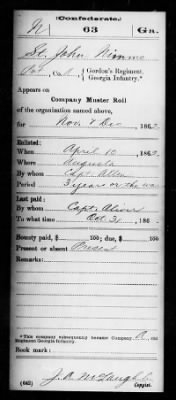 (Confederate.)
N 63 Ga.
St. John Nimmo
Pvt., Co. A, Gordon's Regiment, Georgia Infantry.*
Appears on
Company Muster Roll
of the organization named above,
for Nov. & Dec, 186
Enlisted:
When April 10, 186
Where Augusta
By whom Capt. Allen
Period 3 years or the war
Last paid:
By whom Capt. Oliver
To what time Oct 31, 186
Bounty paid, $ 100; due, $ 100
Present or absent Present
Remarks:
*This company subsequently became Company
Regiment Georgia Infantry.
Book mark:
J. A. McLaughlin
(642) Copyist.